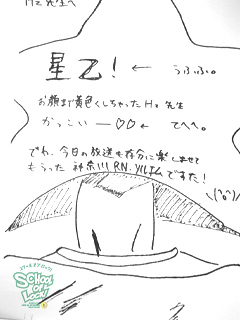 Hz 先生へ
星乙! ← うふふ。
お顔まで黄色くしちゃったHz 先生
かっこいー♡♡ ← てへへ。
でわ、今日の放送も存分に楽しませて
もらった 神奈川 RN.ソルエムですた!
\(^o^)
SCHOOL
OF
LOCK!